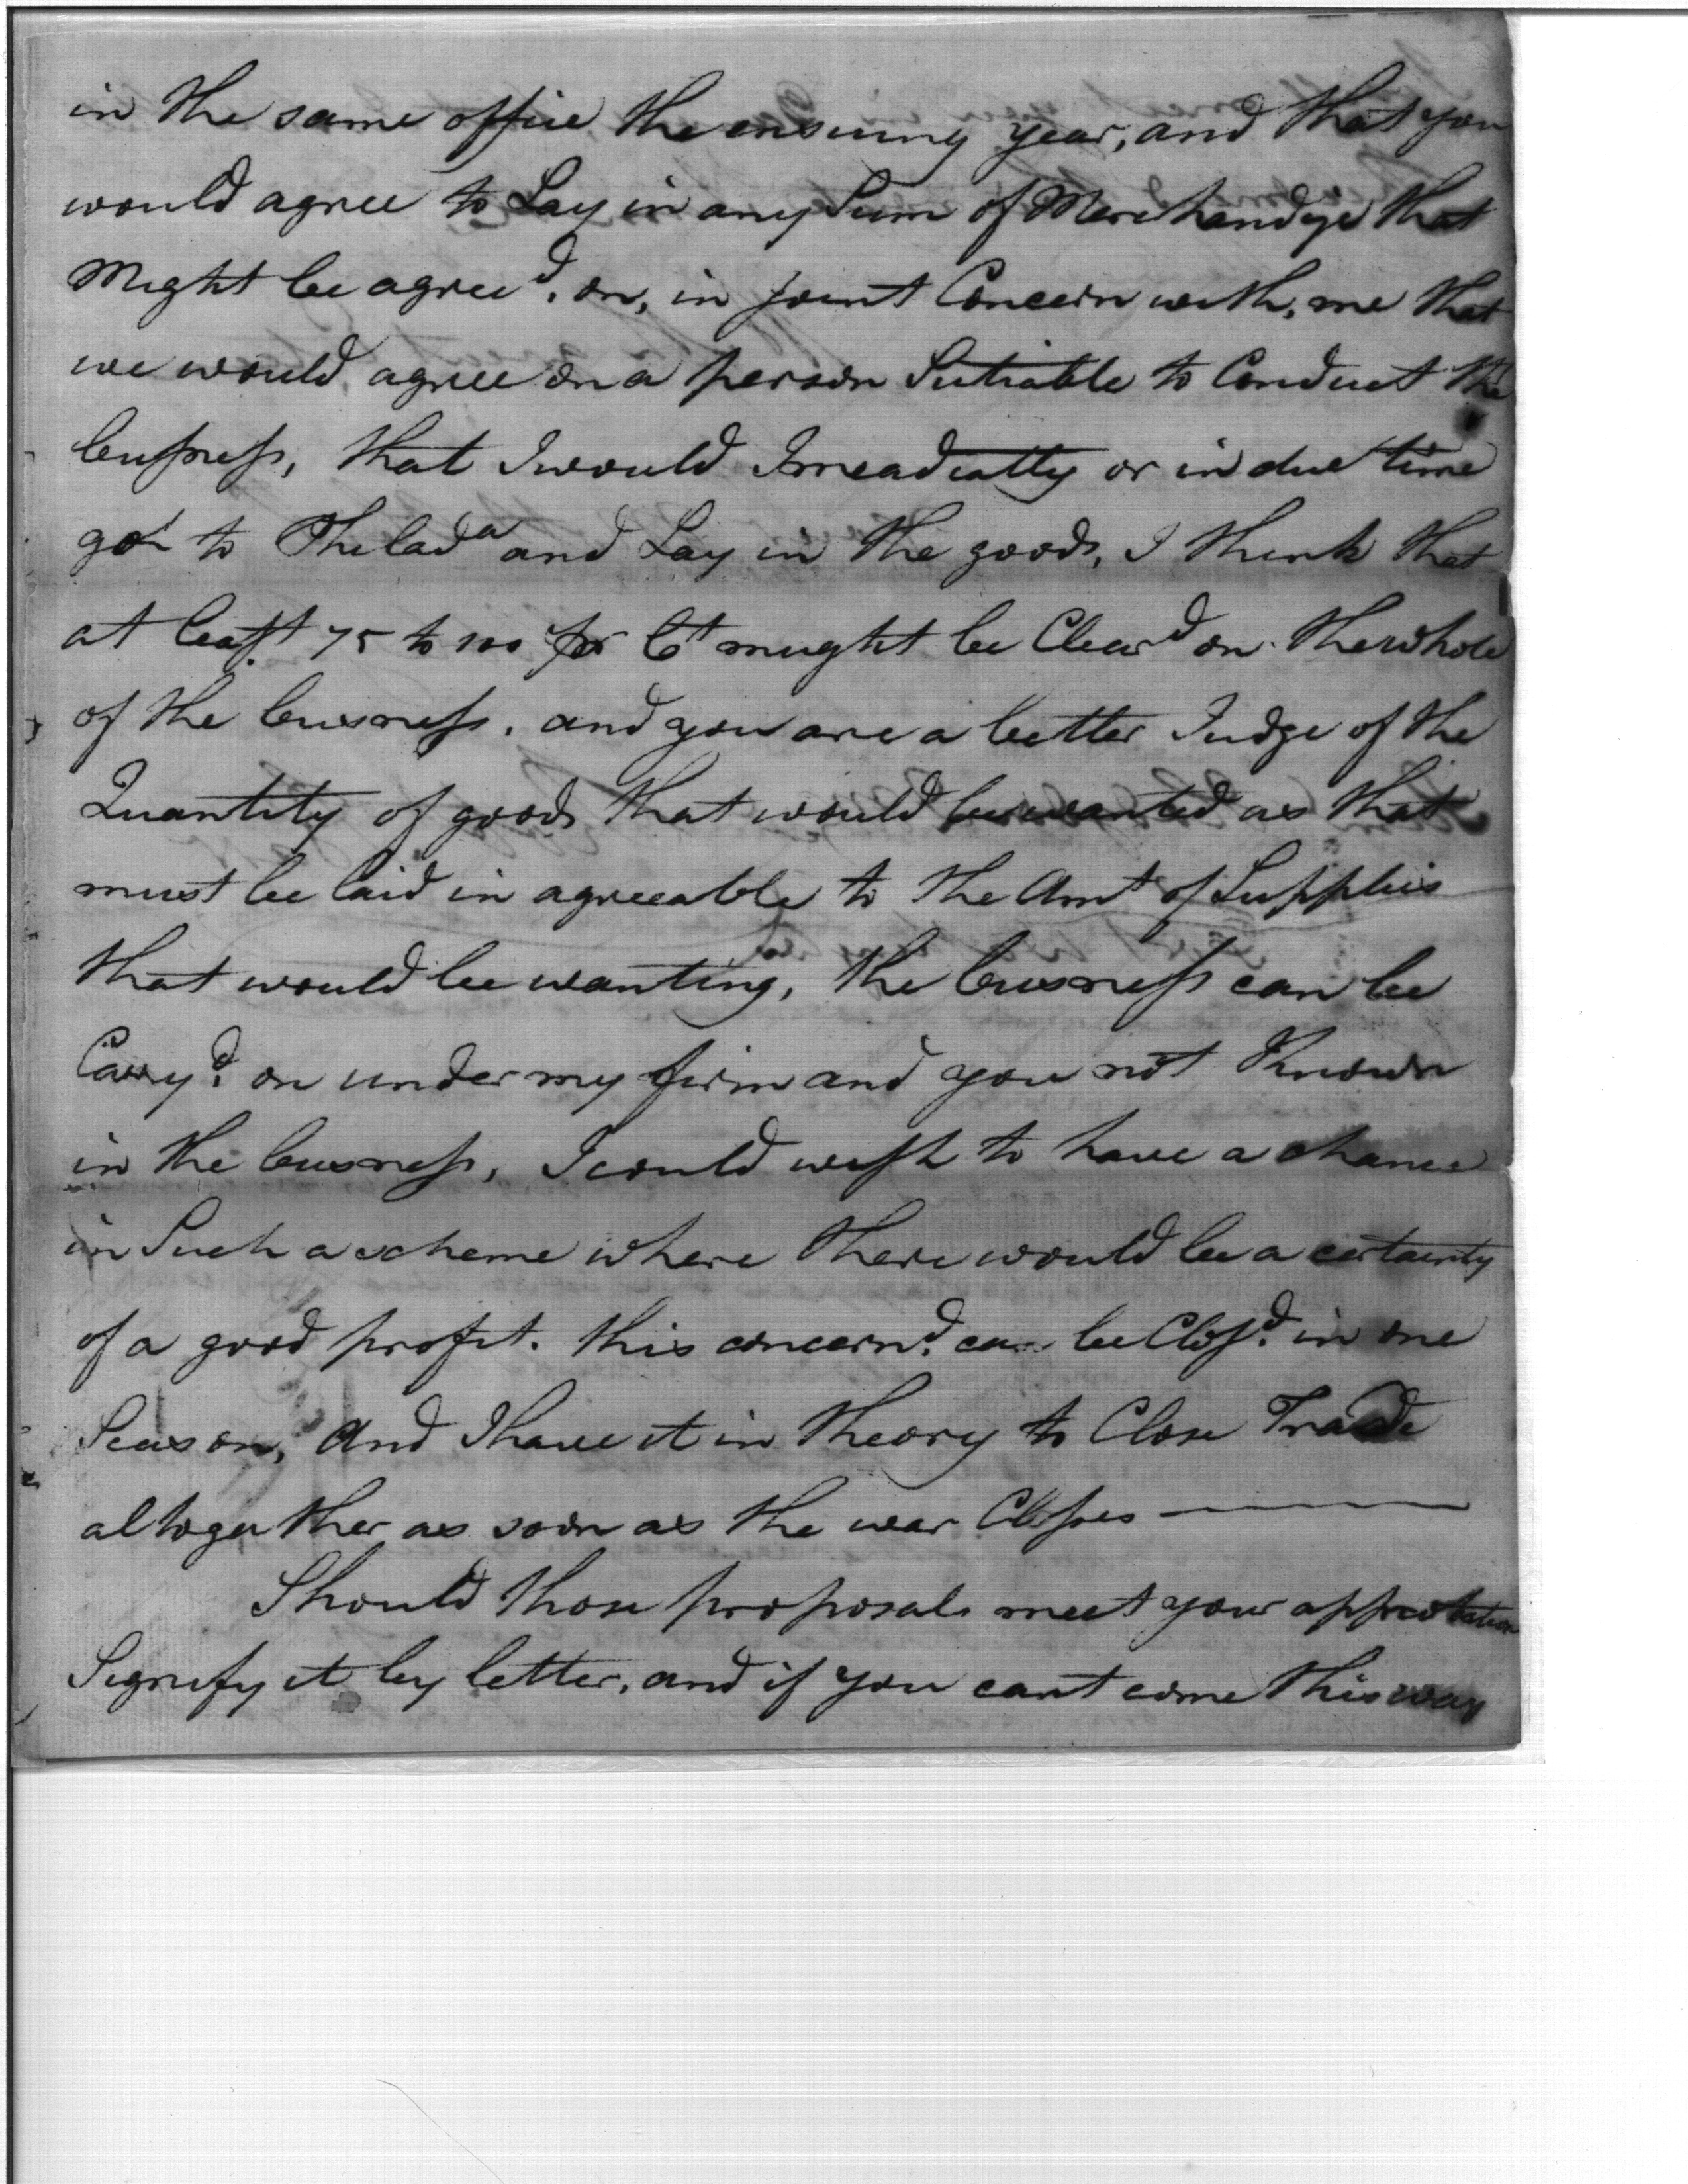 in the same office the ensuing year, and that you
would agree to Lay in any Sum of Merchandize that
Might be agreed. on, in joint Concern with, me that
we would agree on a person Sutiable to Conduct the
busness, that I would Imeadiatly or in due time
go to Philada and Lay in the goods, I think that
at least 75 to 100 pr Ct might be Cleard on the whole
of the busness. and you are a better Judge of the
Quantity of goods that would be wanted as that
must be laid in agreeable to the Amt of Supplies
that would be wanting, the busness can be
Carryd. on under my firm and you not Known
in the busness, I could wish to have a chance
in Such a scheme where there would be a certainty
of a good profit. this concernd. can be Closd. in one
Season, And I have it in theory to Close Trade
altogeather as soon as the war Closes
Should those proposals meet your approbation
Signify it by letter, and if you cant come this way